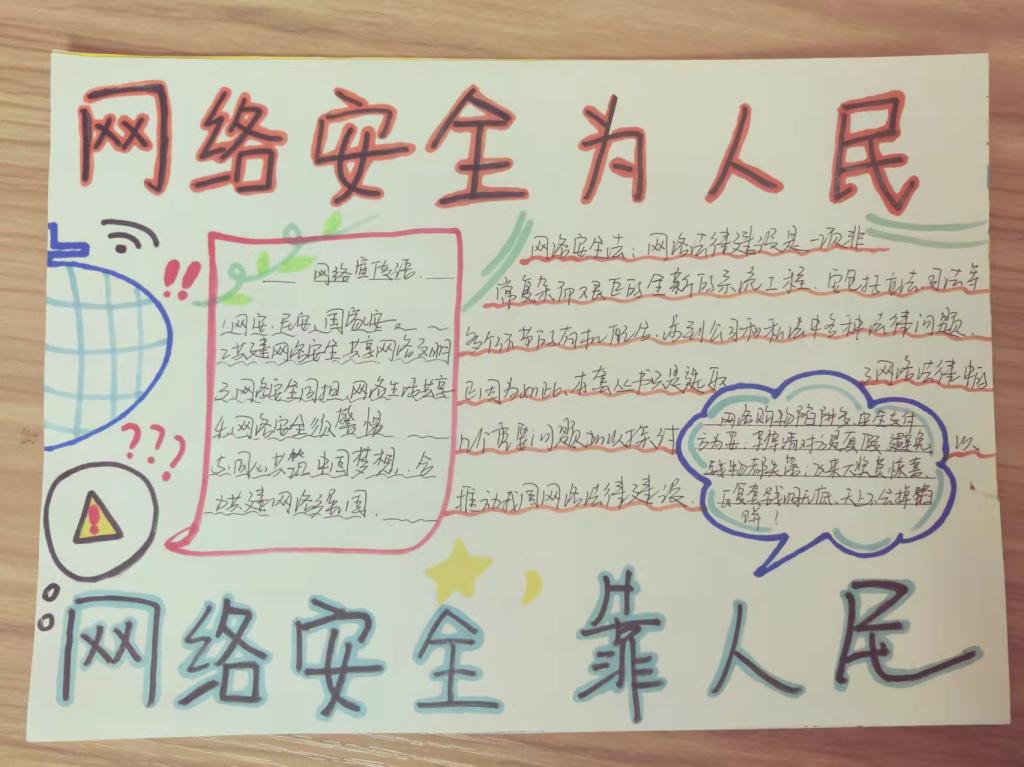 网络安全为人民
网络宣传语.
1.网安.民安,国家安。
2.共建网络安全,共享网络文明
3.网络安全同担,网络生活共享
4.网络安全须警惕
5.同心共筑中国梦想,合
力共建网络强国.
网络安全法:网络法律建设是一项非
常复杂而又艰巨的全新的系统工程,它包括立法,司法等
各个环节的有机配合,涉到公司和私法中各种法律问题.
正因为如此,本套丛书只是选取了网络法律中的
几个重要问题加以探讨 以
推动我国网络法律建设.
网络购物陷阱多,安全支付
方为要;弄清对方是真假,避免
钱物都失落;飞来大奖莫惊喜,
反复套钱洞无底,天上不会掉馅
饼!
网络安全靠人民
!!
???
!